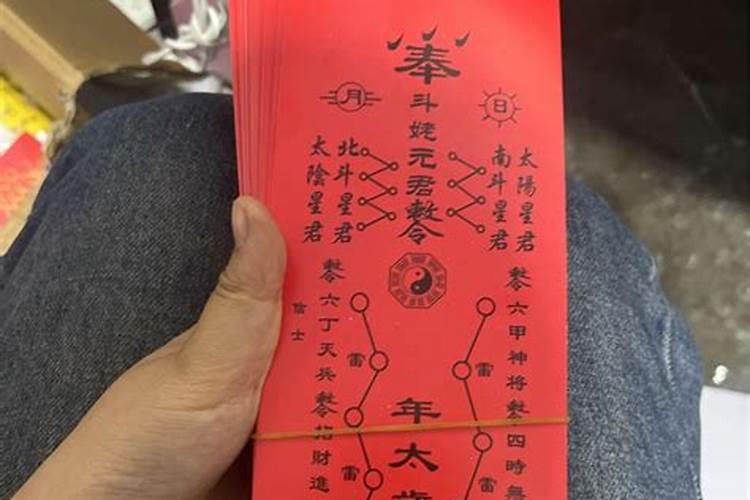 奉
斗姥元君敕令
月
日
太陽星君
南斗星君
北斗星君
太陰星君
敕令六甲神將敕令四時無
雷
雷
年太歲
雷
雷
敕令六丁天兵敕令招財進
信士